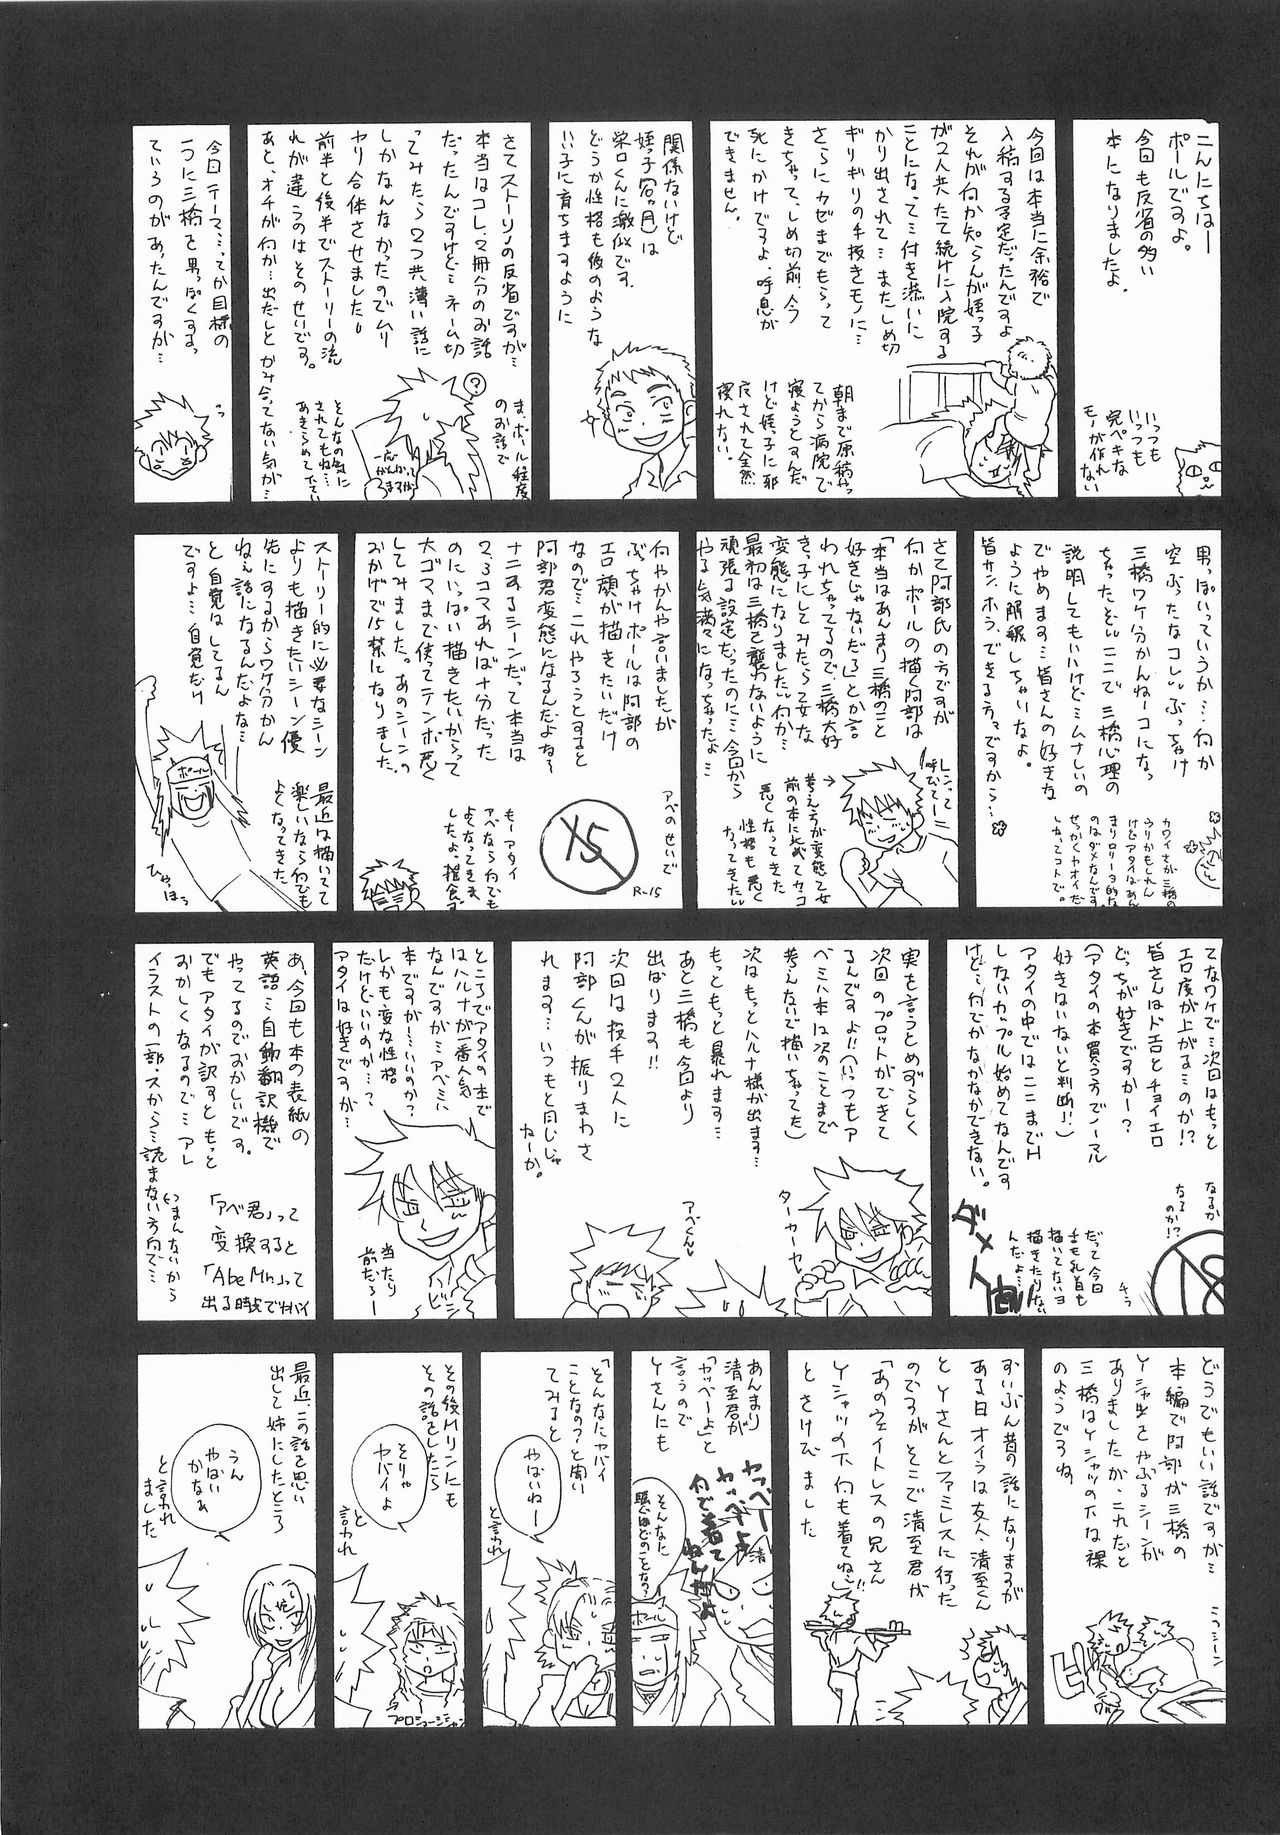 こんにちはー
ポールですよ。
今回も反省の多い
本になりましたよ。
いっつも
いっつも
完ペキな
モーが作れ
ない
今回は本当に余裕で
入稿する予定だったんですよ
それが何か知らんが姪っ子
が2人共たて続けに入院する
ことになって…付き添いに
かり出されて…またしめ切
ギリギリの手抜きモノに…
さらにカゼまでもらって
きちゃって、しめ切前、今
死にかけですよ。呼吸が
できません。
朝まで原稿やっ
てから病院で
寝ようとすんだ
けど姪っ子に邪
广されて全然
寝れない。
関係ないけど
栄口くんに激似です。
どうか性格も彼のような
いい子に育ちますように
さてストーリーの反省ですが…
本当はコレ、2冊分のお話
だったんですけど…ネーム切
ってみたら2つ共薄い話に
しかなんなかったのでムリ
ヤリ合体させました。
前半と後半でストーリーの流
れが違うのはそのせいです。
あと、オチが何か…出だしとかみ合ってない気が…
ま、ポール程度
のお話で
そんなの気に
されてもね…
あきらめて下てい
？
今回テーマ…ってか目標の
一つに三橋を男っぽくする、
ていうのがあったんですが…
男っぽいっていうか…何か
空ぶったなコレ。ぶっちゃけ
三橋ワケ分かんねーコになっ
ちゃったどいここで三橋心理の
説明してもいいけど…ムナしいの
でやめます…皆さんの好きな
ように解釈しちゃいなよ。
皆サン、ホラ、できる方々ですから…
カワイさが三橋の
ウリかもしれん
けどアタイはあん
まりロリータ的な
のはダメなんです。
せっかくヤオイだ
しねってコトで。
さて阿部氏の方ですが
何かポールの描く阿部は
「本当はあんまり三橋のこと
好きじゃないだろ」とか言
われちゃってるので、三橋大好
きっ子にしてみたら乙女な
変態になりました。何か…
最初は三橋を襲わないように
頑張る設定だったのに…今回から
やる気満々になっちゃったよ…
レンって
呼びてー
考え方が変態乙女
前の本に比べてカッコ
悪くなってきた
性格も悪く
なってきた
何やかんや言いましたが
ぶっちゃけポールは阿部の
エロ顔が描きたいだけ
なので…これやろうとすると
阿部君変態になるんだよな〜
ナニするシーンだって本当は
2、3コマあれば十分だった
のにいっぱい描きたいからって
大ゴマまで使ってテンポ悪く
してみました。あのシーンの
おかげで15禁になりました。
アベのせいで
15
R-15
もーアタイ
アベなら何でも
よくなってきま
したよ。
ストーリー的に必要なシーン
よりも描きたいシーン優
先にするからワケ分かん
ねぇ話になるんだよな…
と自覚はしてるん
ですよ…自覚だけ
最近は描いてて
楽しいなら何でも
よくなってきた
ポール
ひゃっほぅ
てなワケで…次回はもっと
エロ度が上がる…のか!?
皆さんはドエロとチョイエロ
どっちが好きですかー？
（アタイの本買う方でノーマル
好きはいないと判断!!）
アタイの中ではここまでH
しないカップル始めてなんです
けど…何でかなかなかできない。
なるか
なる
のか!?
だって今回
チ〇も乳首も
描いてないヨ
描きたりない
んだよ…
18
ダメ
実も言うとめずらしく
次回のプロットができて
るんですよ!!（いつもア
ベミハ本は次のことまで
考えないで描いちゃってた）
次はもっとハルナ様が出ます…
もっともっと暴れます…
あと三橋も今回より
出ばります!!
次回は投手2人に
阿部くんが振りまわさ
れます…いつもと同じじゃ
ねーか。
ターカーヤ
アベくん
ところでアタイの本で
はハルナが一番人気
なんですが…アベミハ
本ですが…いいのか？
しかも変な性格
だけどいいのか…？
アタイは好きですが…
当たり
前だろー
あ、今回も本の表紙の
英語…自動翻訳機で
やってるのでおかしいです。
でもアタイが訳すともっと
おかしくなるので…アレ
イラストの一部、スから…読まない方向で…
いまんないから
「アベ君」って
変換すると
「Abe Mr.」って
出る時点でヤバイ
どうでもいい話ですが…
本編で阿部が三橋の
Yシャ出さやぶるシーンが
ありましたが、これだと
三橋はYシャツの下は裸
のようですね。
ずいぶん昔の話になりますが
ある日オイラは友人清至くん
とYさんとファミレスに行った
のですがそこで清至君が
「あのウェイトレスの兄さん
Yシャツの下何も着てねぇ!!」
とさけびました
あんまり
清至君が
「ヤッベーよ」と
言うので
Yさんにも
ヤッベー
ヤッベーよ
清
そんなに
騒ぐほどのことなの？
ポール
「そんなにヤバイ
ことなの？」と聞い
てみると
やばいねー
と言われ
その後Mリンにも
その話をしたら
そりゃ
ヤバイよ
と
言われ
プロデューサーじゃん
最近、この話を思い
出して姉にしたところ
うん
やばい
かなぁ
と言われ
ました
姉